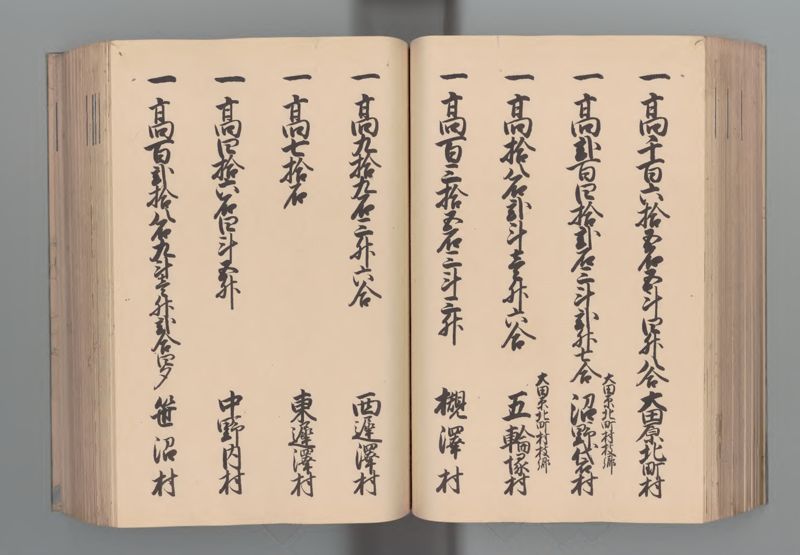 一高千百六拾五石五斗四升八合 大田原北町村
大田原北町村枝郷
一高弐百四拾弐石三斗弐升七合 沼野袋村
大田原北町村枝郷
一高拾八石弐斗壱升六合 五輪塚村
一高百三拾五石三斗三升 槻澤村
一高九拾九石三升六合 西遅澤村
一高七拾石 東遅澤村
一高四拾六石四斗五升 中野内村
一高百弐拾八石九斗壱升弐合四夕 笹沼村